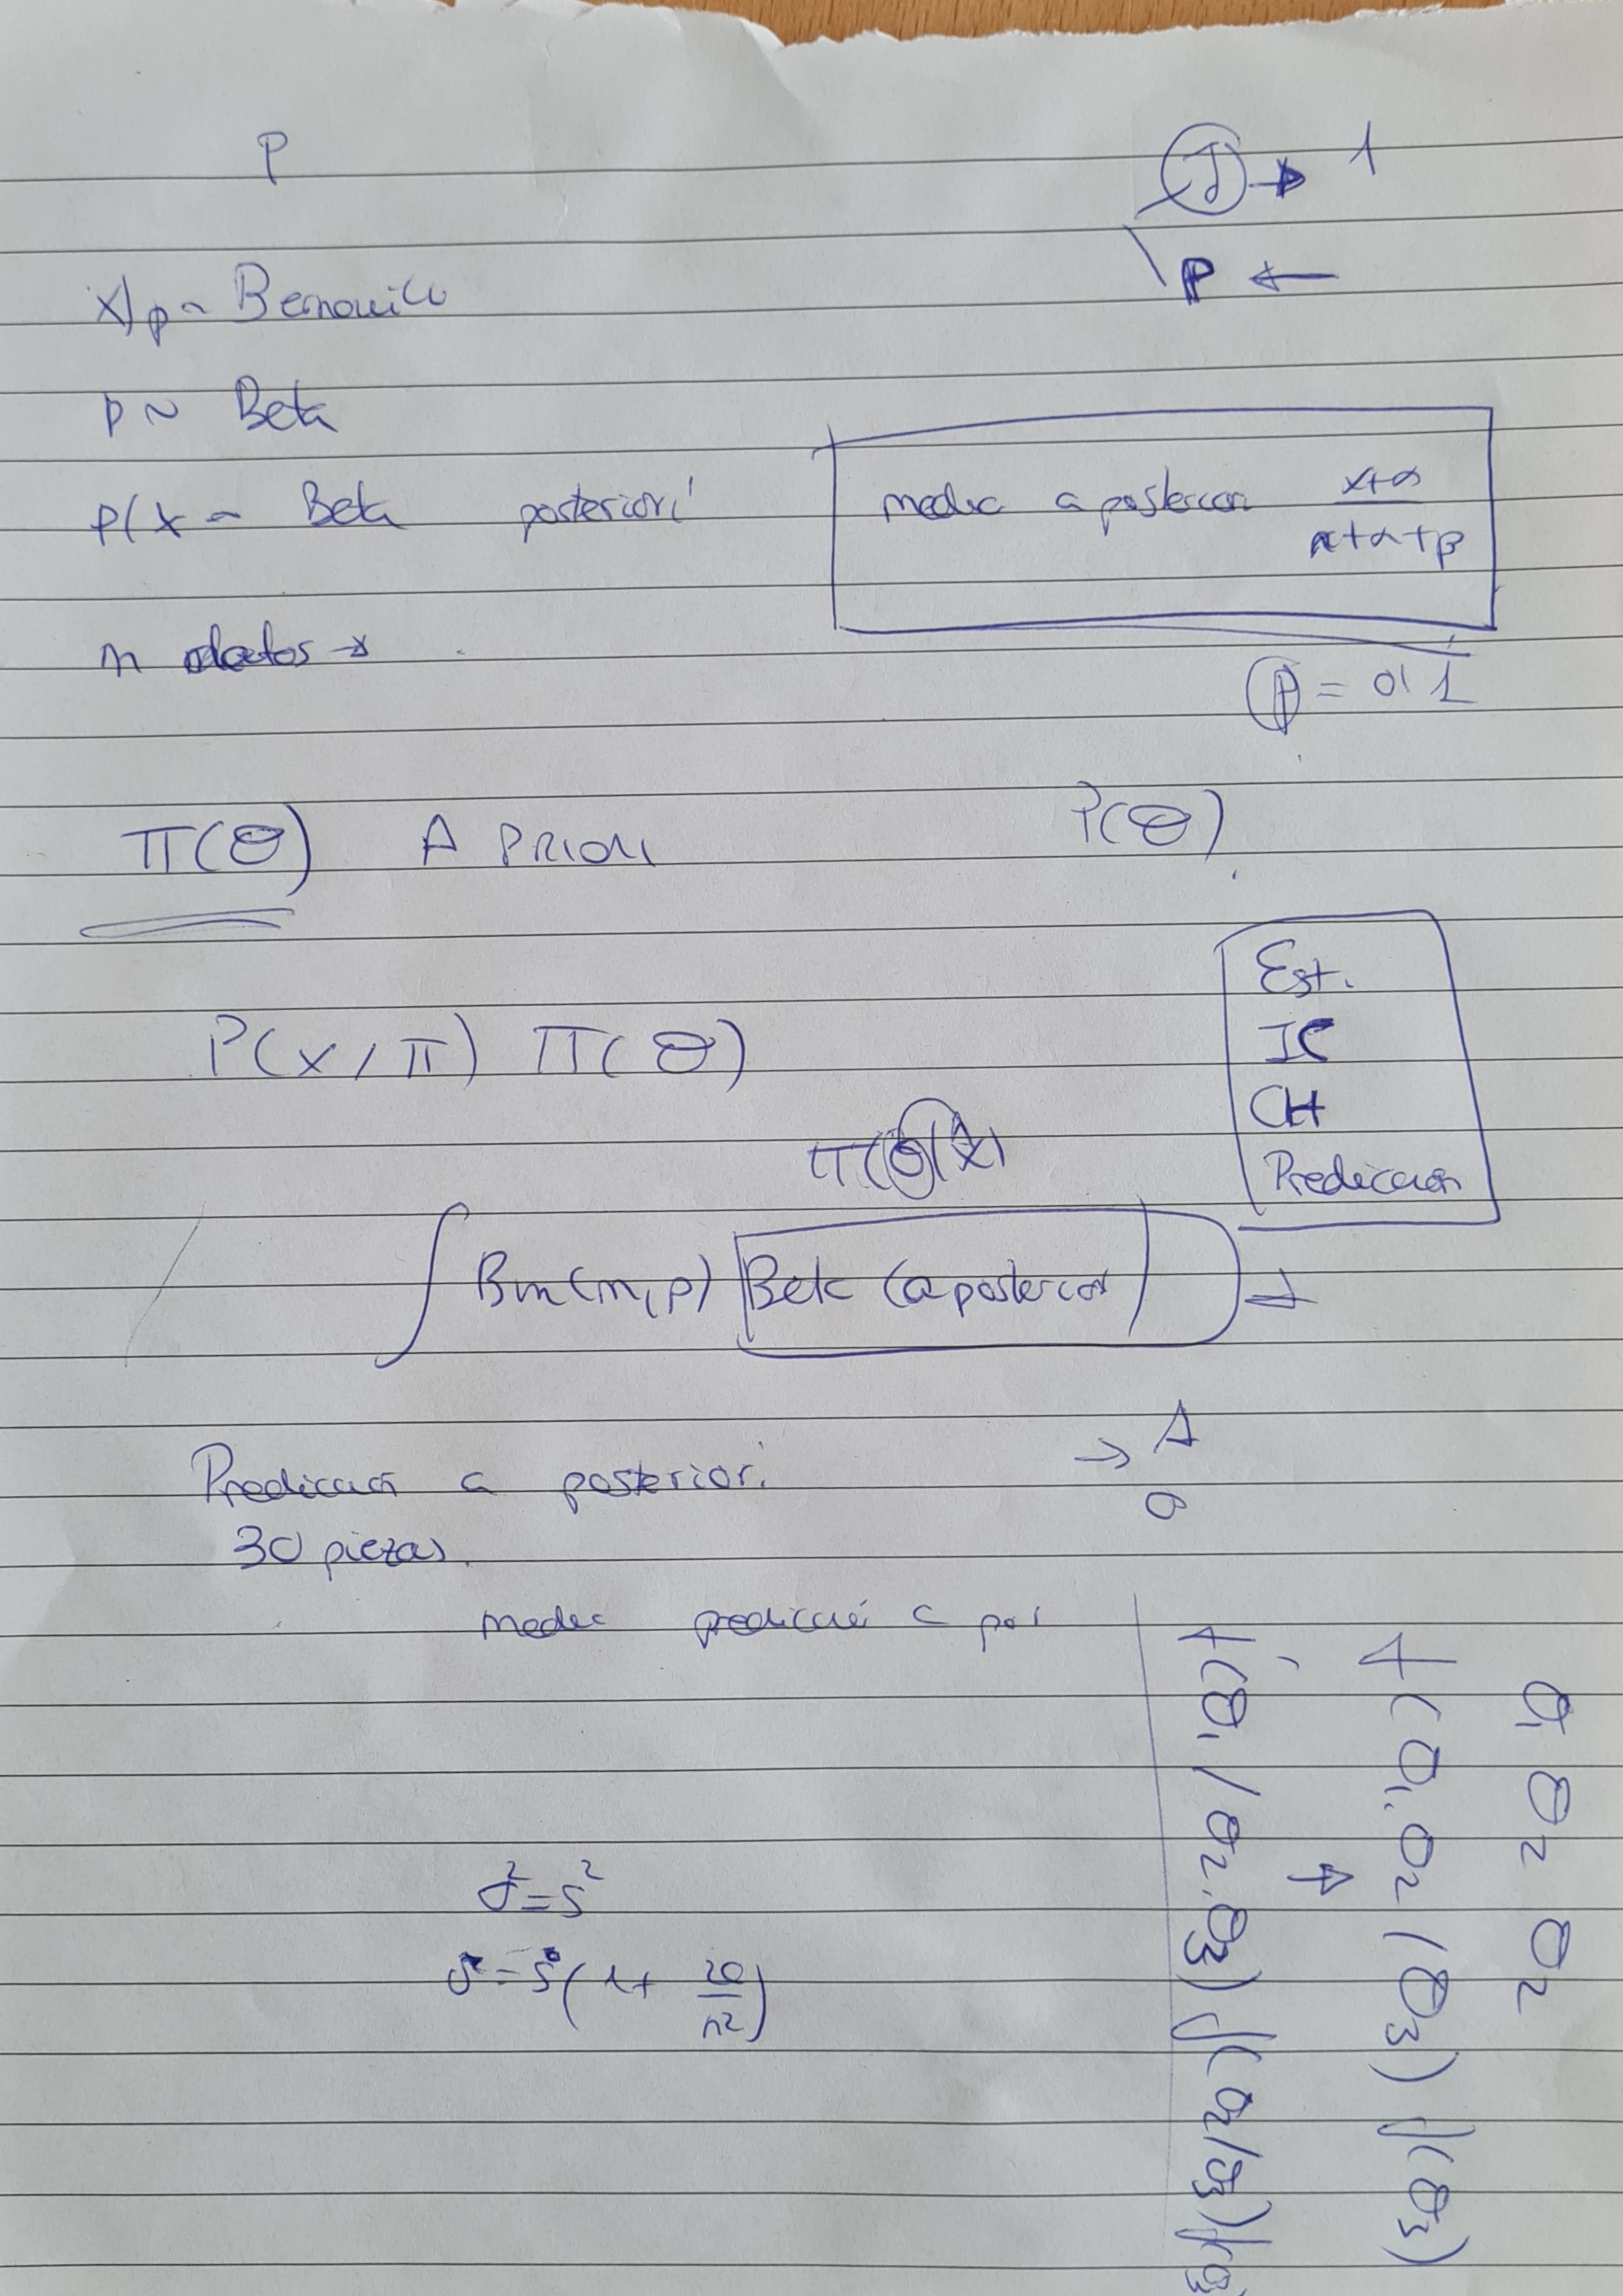 P
J → 1
P ←
x/p ~ Bernouilli
p ~ Beta
p/x ~ Beta posteriori
media a posteriori (x+α)/(n+α+β)
n datos →
p = 0'1
π(θ) A PRIORI
P(θ)
P(x/π) π(θ)
Est.
IC
CH
Predicción
π(θ/x)
∫ Bin(n,p) Beta (a posteriori) →
Predicción a posteriori
→ 1
0
30 piezas.
media predicció a pos
σ² = s²
(1+ 20/n²)
θ₁ θ₂ θ₂
f(θ₁, θ₂/θ₃) f(θ₃)
→
f(θ₁/θ₂,θ₃) f(θ₂/θ₃) f(θ₃